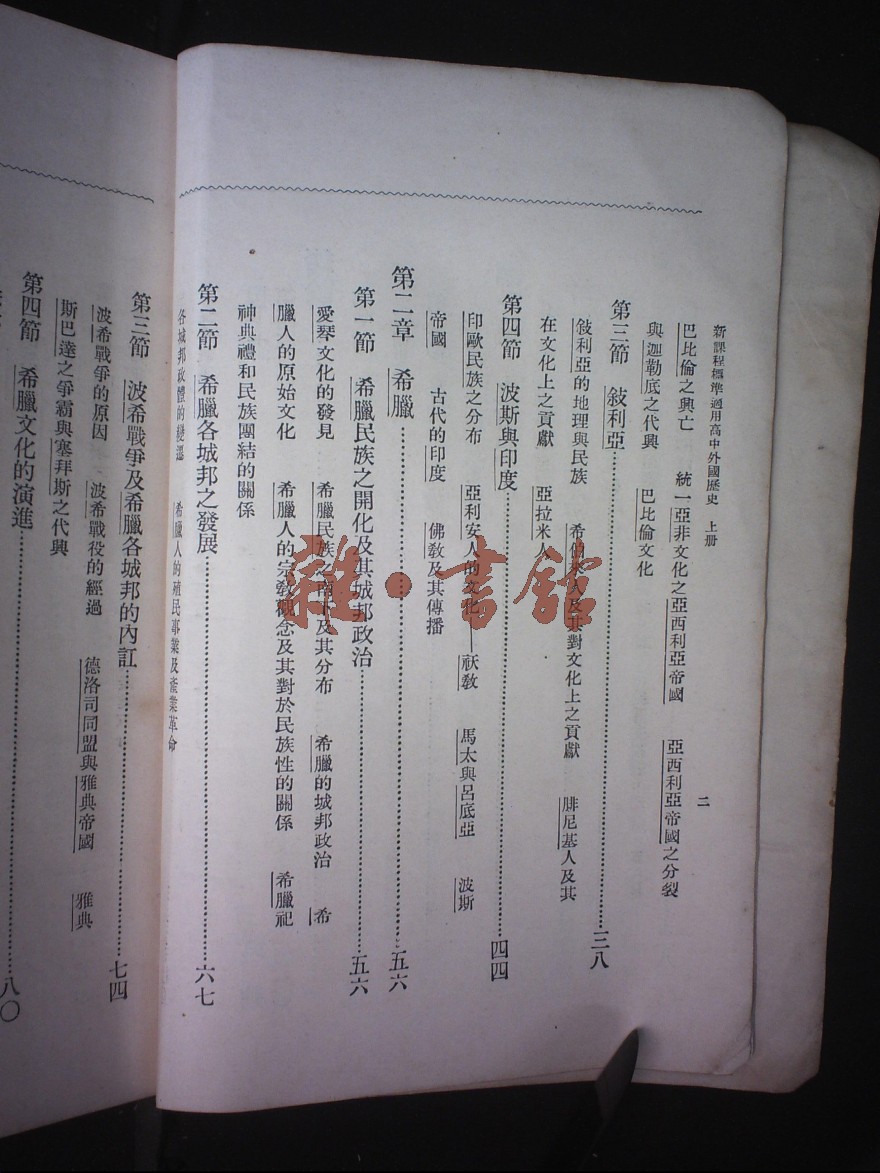 新課程標準適用高中外國歷史 上册
二
巴比倫之興亡 統一亞非文化之亞西利亞帝國 亞西利亞帝國之分裂
與迦勒底之代興 巴比倫文化
第三節 敍利亞…………三八
敍利亞的地理與民族 希伯來人及其對文化上之貢獻 腓尼基人及其
在文化上之貢獻 亞拉米人
第四節 波斯與印度…………四四
印歐民族之分布 亞利安人的文化——祆敎 馬太與呂底亞 波斯
帝國 古代的印度 佛敎及其傳播
第二章 希臘…………五六
第一節 希臘民族之開化及其城邦政治…………五六
愛琴文化的發見 希臘民族之南下及其分布 希臘的城邦政治 希
臘人的原始文化 希臘人的宗敎觀念及其對於民族性的關係 希臘祀
神典禮和民族團結的關係
第二節 希臘各城邦之發展…………六七
各城邦政體的變遷 希臘人的殖民事業及產業革命
第三節 波希戰爭及希臘各城邦的內訌…………七四
波希戰爭的原因 波希戰役的經過 德洛司同盟與雅典帝國 雅典
斯巴達之爭霸與塞拜斯之代興
第四節 希臘文化的演進…………八〇
雜·書館